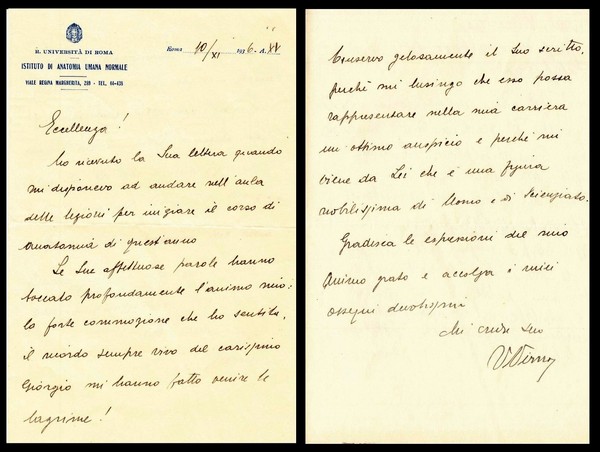 R. UNIVERSITÀ DI ROMA
ISTITUTO DI ANATOMIA UMANA NORMALE
VIALE REGINA MARGHERITA, 289 - TEL. 84-431
Roma 10/XI 1936-A. XV
Eccellenza!
ho ricevuto la Sua lettera quando
mi disponevo ad andare nell'aula
delle lezioni per iniziare il corso di
anatomia di quest'anno
Le Sue affettuose parole hanno
toccato profondamente l'animo mio;
la forte commozione che ho sentito,
il ricordo sempre vivo del carissimo
Giorgio mi hanno fatto venire le
lagrime!
Conservo gelosamente il Suo scritto,
perché mi lusingo che esso possa
rappresentare nella mia carriera
un ottimo auspicio e perché mi
viene da Lei che è una figura
nobilissima di Uomo e di Scienziato.
Gradisca le espressioni del mio
animo grato e accolga i miei
ossequi devotissimi
Mi creda Suo